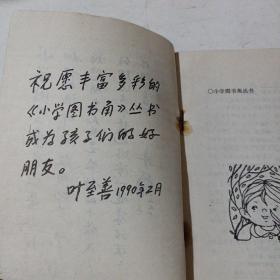 祝愿丰富多彩的
《小学图书角》丛书
成为孩子们的好
朋友。
叶至善1990年2月
○小学图书角丛书